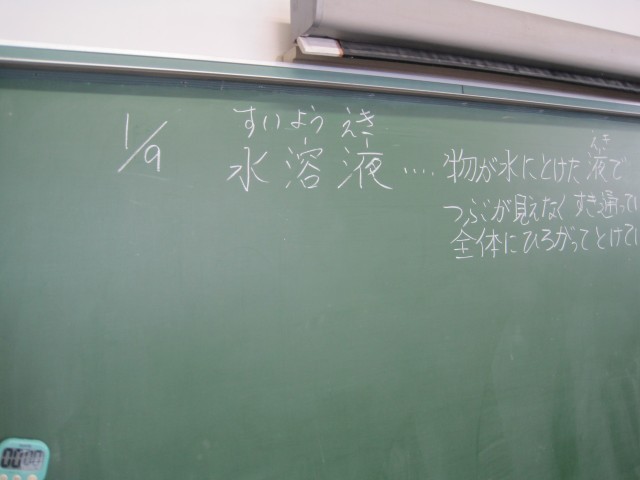 1/9
すいようえき
水溶液‥‥物が水にとけた液で
えき
つぶが見えなくすき通ってい
全体にひろがってとけてい
00:00